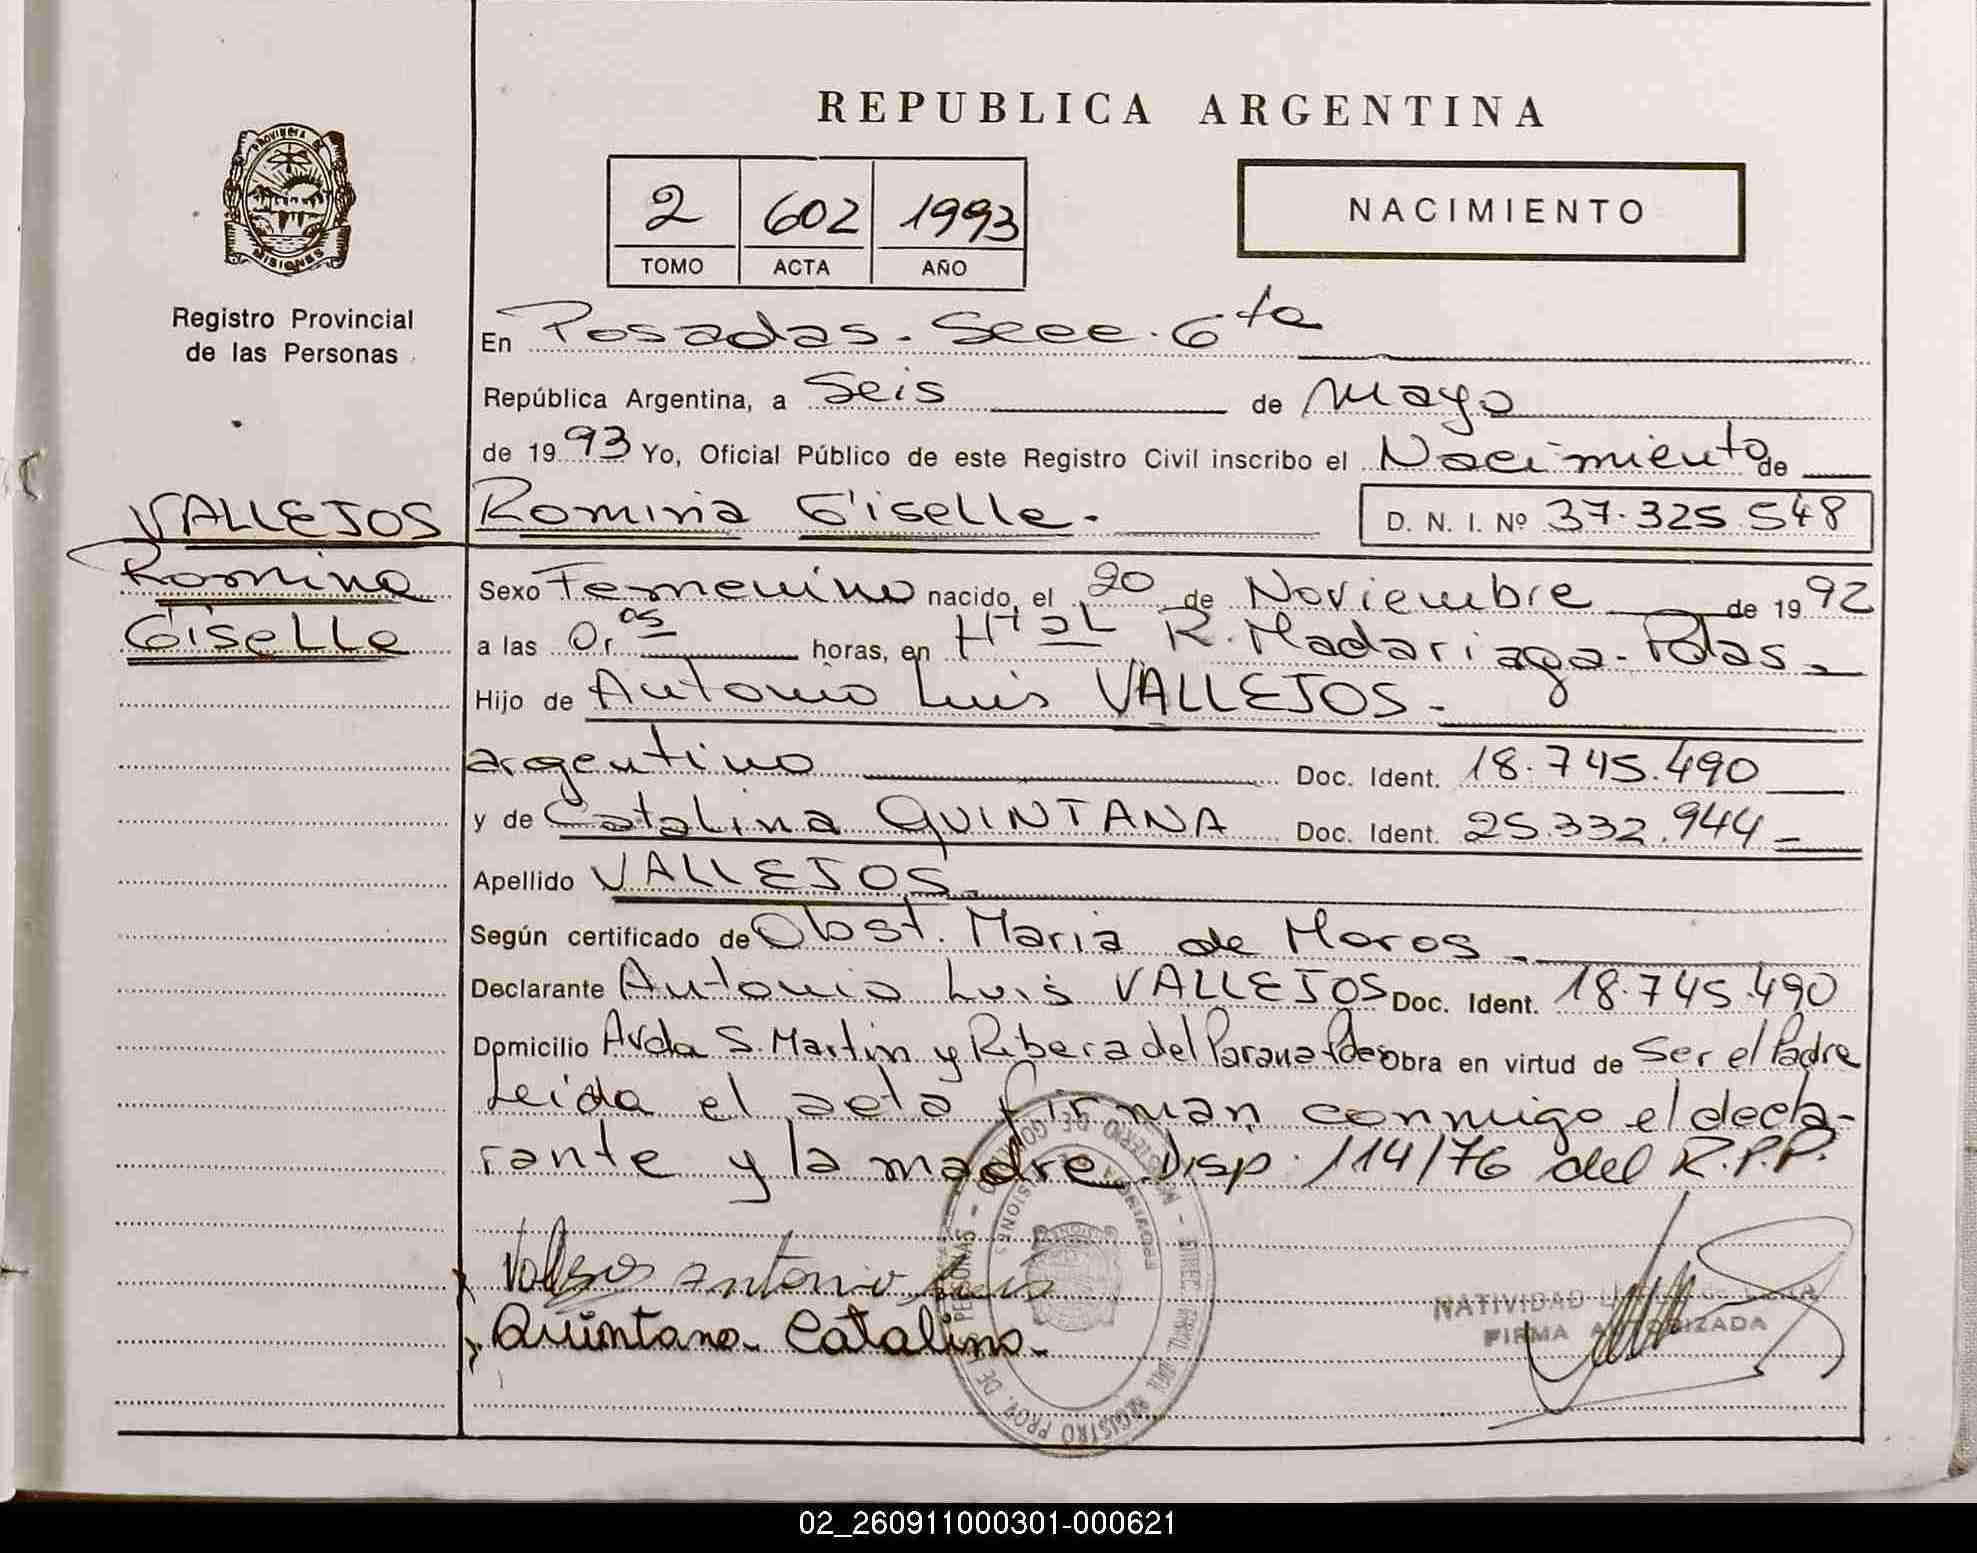 REPUBLICA ARGENTINA
PROVINCIA DE
MISIONES
Registro Provincial
de las Personas
2 602 1993
TOMO ACTA AÑO
NACIMIENTO
En Posadas. Secc. 6ta
República Argentina, a Seis de Mayo
de 1993 Yo, Oficial Público de este Registro Civil inscribo el Nacimiento de
VALLEJOS
Romina
Giselle
Romina Giselle. D. N. I. Nº 37.325.548
Sexo Femenino nacido, el 20 de Noviembre de 1992
a las horas, en Htal R. Madariaga. Pdas.
Hijo de Antonio Luis VALLEJOS.
argentino Doc. Ident. 18.745.490
y de Catalina QUINTANA Doc. Ident. 25.332.944
Apellido VALLEJOS.
Según certificado de Obst. Maria de Moros.
Declarante Antonio Luis VALLEJOS Doc. Ident. 18.745.490
Domicilio Avda S. Martin y Ribera del Parana Pdas Obra en virtud de Ser el Padre
Leida el acta firman conmigo el decla-
rante y la madre. Disp. 114/76 del R.P.P.
Antonio Luis
Quintana Catalina.
NATIVIDAD
FIRMA AUTORIZADA
MINISTERIO DE GOBIERNO - DIREC. GRAL. DEL REGISTRO PROV. DE LAS PERSONAS -
PROVINCIA DE MISIONES
02_260911000301-000621